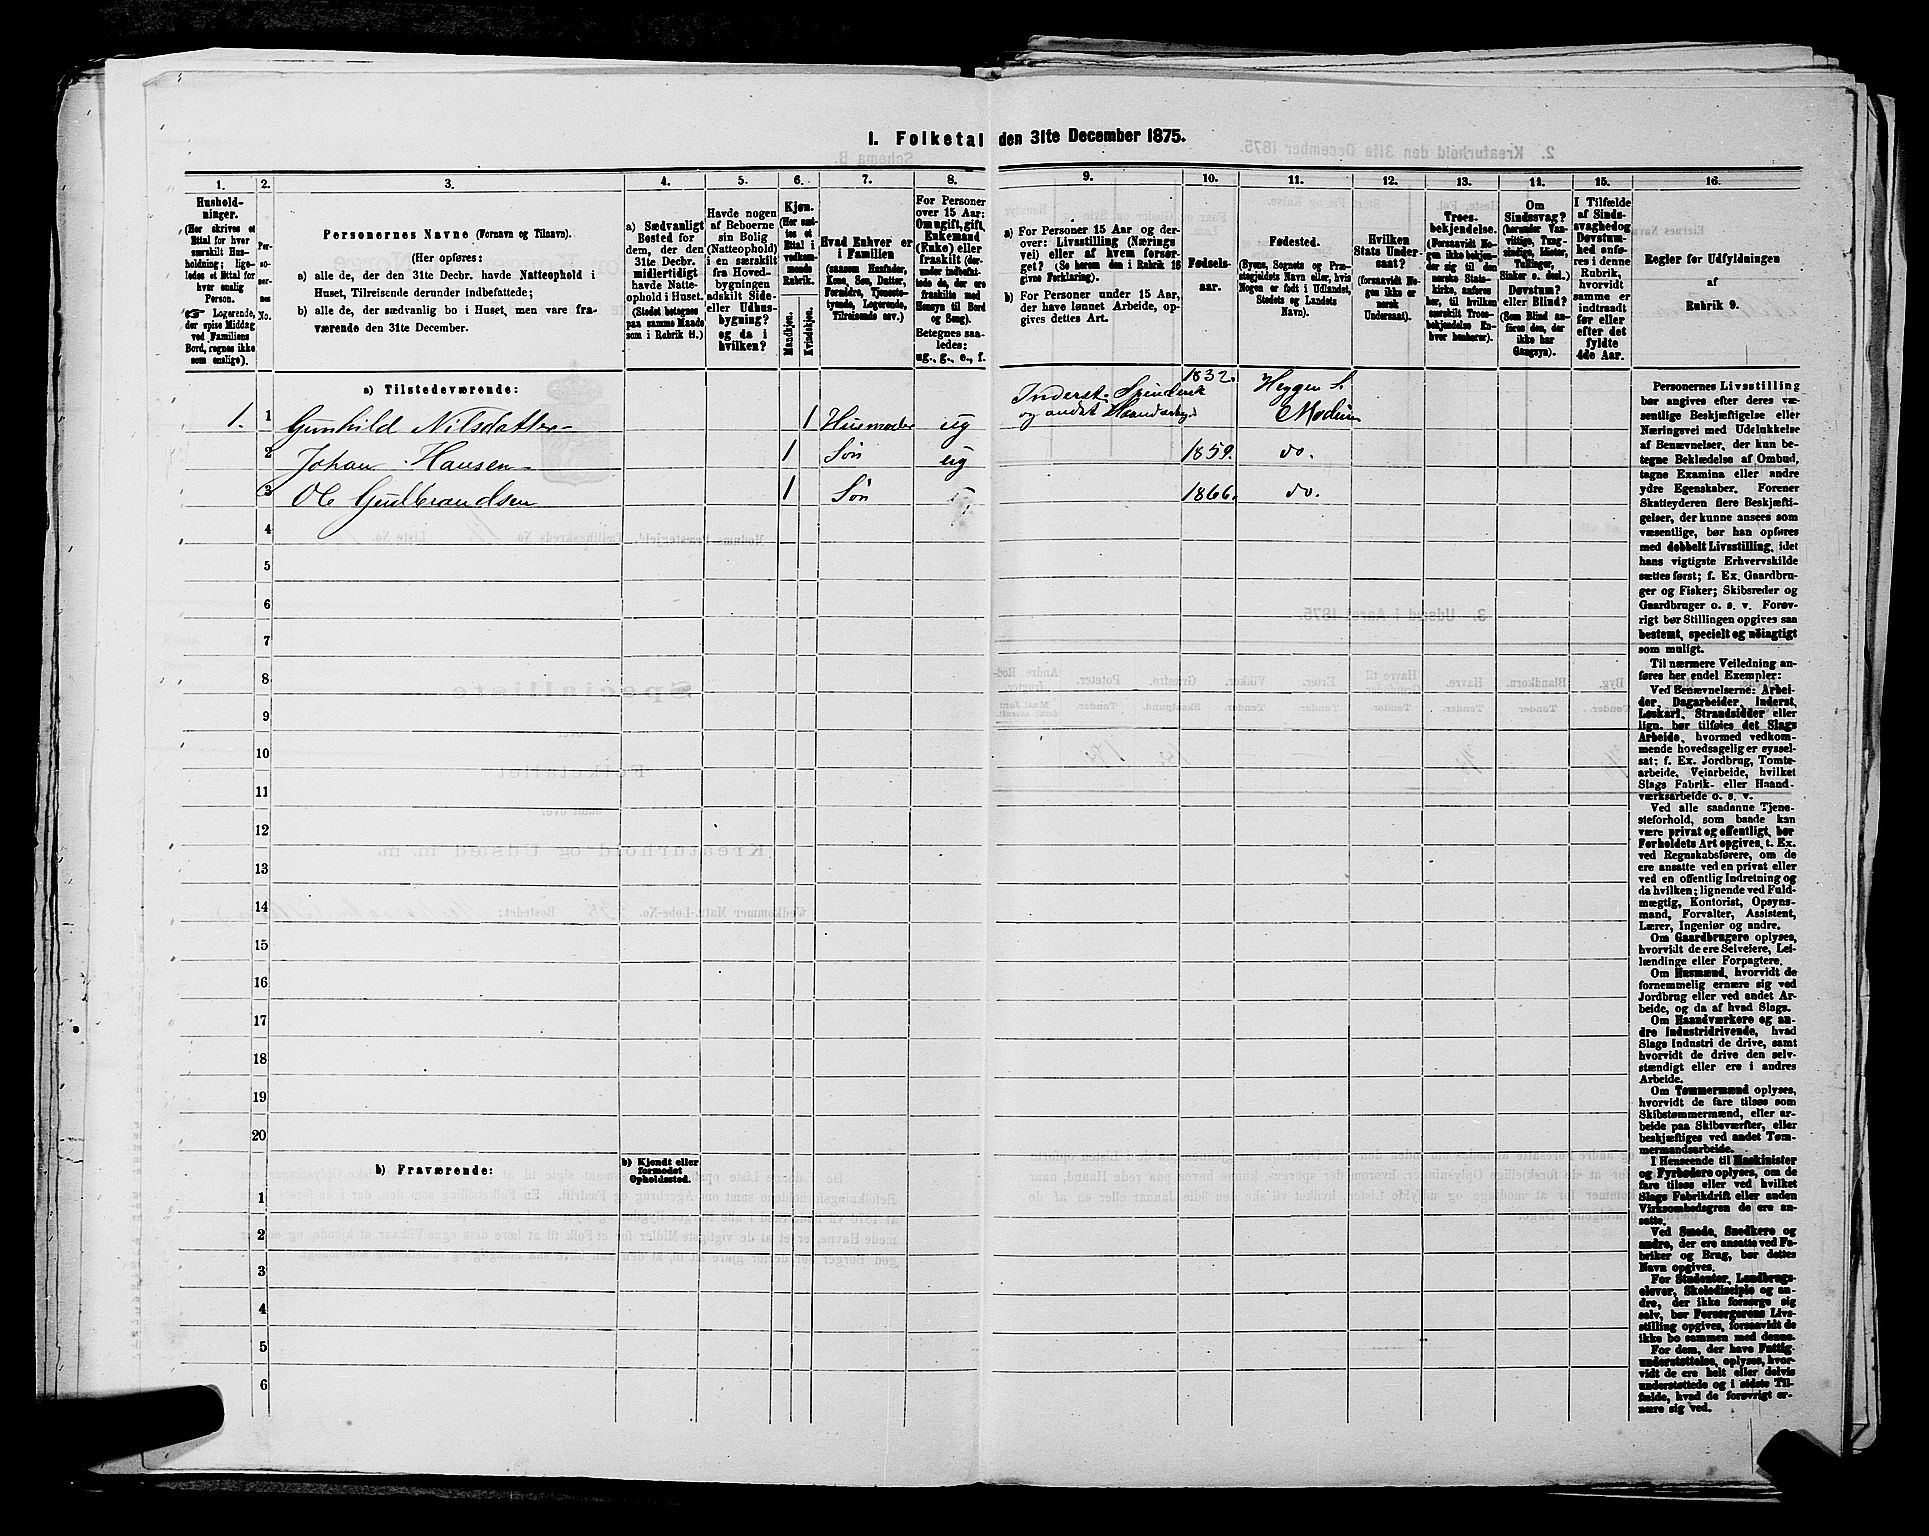 1. Folketal den 31te December 1875.
1.
2.
3.
4.
5.
6.
7.
8.
9.
10.
11.
12.
13.
14.
15.
16.
Husholdninger.
(Her skrives et Ettal for hver særskilt Husholdning; ligeledes et Ettal for hver enslig Person.
☞ Logerende, der spise Middag ved Familiens Bord, regnes ikke som enslige).
Personernes No.
Personernes Navne (Fornavn og Tilnavn).
(Her opføres:
a) alle de, der den 31te Decbr. havde Natteophold i Huset, Tilreisende derunder indbefattede;
b) alle de, der sædvanlig bo i Huset, men vare fraværende den 31te December.
a) Sædvanligt Bosted for dem, der den 31te Decbr. midlertidigt havde Natteophold i Huset. (Stedet betegnes paa samme Maade som i Rubrik 11.)
Havde nogen af Beboerne sin Bolig (Natteophold) i en særskilt fra Hovedbygningen adskilt Side- eller Udhusbygning? og da i hvilken?
Kjøn. (Her sættes et Ettal i vedkommende Rubrik.
Mandkjøn.
Kvindekjøn.
Hvad Enhver er i Familien
(saasom Husfader, Kone, Søn, Datter, Forældre, Tjenestetyende, Logerende, Tilreisende osv.)
For Personer over 15 Aar: Om ugift, gift, Enkemand (Enke) eller fraskilt (derunder indbefattede de, der ere fraskilte med Hensyn til Bord og Seng).
Betegnes saaledes: ug., g., e., f.
a) For Personer 15 Aar og derover: Livsstilling (Næringsvei) eller af hvem forsørget? (Se herom den i Rubrik 16 givne Forklaring).
b) For Personer under 15 Aar, der have lønnet Arbeide, opgives dettes Art.
Fødselsaar.
Fødested.
(Byens, Sognets og Præstegjeldets Navn eller, hvis Nogen er født i Udlandet, Stedets og Landets Navn).
Hvilken Stats Undersaat?
(forsaavidt Nogen ikke er norsk Undersaat).
Troesbekjendelse.
(Forsaavidt Nogen ikke bekjender sig til den norske Statskirke, anføres her, til hvilken særskilt Troesbekjendelse Enhver henhører).
Om Sindssvag? (herunder Vanvittige, Tungsindige, Idioter, Tullinger, Sinker o. desl.) Døvstum? eller Blind? (Som Blind anføres den, der ikke har Gangsyn).
I Tilfælde af Sindssvaghed og Døvstumhed anføres i denne Rubrik, hvorvidt samme er indtraadt før eller efter det fyldte 4de Aar.
Regler for Udfyldningen
af
Rubrik 9.
a) Tilstedeværende:
1. 1 Gunhild Nilsdatter 1 Husmoder ug Inderst. Spinderi og andet Haandarbeid 1832. Heggen S. Modum
2 Johan Hansen 1 Søn ug 1859. do.
3 Ole Gulbrandsen 1 Søn 1866. do.
4
5
6
7
8
9
10
11
12
13
14
15
16
17
18
19
20
b) Fraværende:
b) Kjendt eller formodet Opholdssted.
1
2
3
4
5
6
Personernes Livsstilling
bør angives efter deres væ-
sentlige Beskjæftigelse eller
Næringsvei med Udelukkelse
af Benævnelser, der kun be-
tegne Beklædelse af Ombud,
tagne Examina eller andre
ydre Egenskaber. Forener
Skatteyderen flere Beskjæfti-
gelser, der kunne ansees som
væsentlige, bør han opføres
med dobbelt Livsstilling, idet
hans vigtigste Erhvervskilde
sættes først; f. Ex. Gaardbru-
ger og Fisker; Skibsreder og
Gaardbruger o. s. v. Forøv-
rigt bør Stillingen opgives saa
bestemt, specielt og nøiagtigt
som muligt.
Til nærmere Veiledning an-
føres her endel Exempler:
Ved Benævnelserne: Arbei-
der, Dagarbeider, Inderst,
Løskarl, Strandsidder eller
lign. bør tilføies det Slags
Arbeide, hvormed vedkom-
mende hovedsagelig er syssel-
sat; f. Ex. Jordbrug, Tomte-
arbeide, Veiarbeide, hvilket
Slags Fabrik- eller Haand-
værksarbeide o. s. v.
Ved alle saadanne Tjene-
steforhold, som baade kan
være privat og offentligt, bør
Forholdets Art opgives, t. Ex.
ved Regnskabsførere, om de
ere ansatte ved en privat eller
ved en offentlig Indretning og
da hvilken; lignende ved Fuld-
mægtig, Kontorist, Opsyns-
mand, Forvalter, Assistent,
Lærer, Ingeniør og andre.
Om Gaardbrugere oplyses,
hvorvidt de ere Selveiere, Lei-
lændinge eller Forpagtere.
Om Husmænd, hvorvidt de
fornemmelig ernære sig ved
Jordbrug eller ved andet Ar-
beide, og da af hvad Slags.
Om Haandværkere og an-
dre Industridrivende, hvad
Slags Industri de drive, samt
hvorvidt de drive den selv-
stændigt eller ere i andres
Arbeide.
Om Tømmermænd oplyses,
hvorvidt de fare tilsøs som
Skibstømmermænd, eller ar-
beide paa Skibsværfter, eller
beskjæftiges ved andet Tøm-
mermandsarbeide.
I Henseende til Maskinister
og Fyrbødere oplyses, om de
fare tilsøs eller ved hvilket
Slags Fabrikdrift eller anden
Virksomhedsgren de ere an-
satte.
Ved Smede, Snedkere og
andre, der ere ansatte ved Fa-
briker og Brug, bør dettes
Navn opgives.
For Studenter, Landbrugs-
elever, Skoledisciple og an-
dre, der ikke forsørge sig
selv, bør Forsørgerens Livs-
stilling opgives, forsaavidt de
ikke bo sammen med denne.
For dem, der have Fattig-
understøttelse, oplyses, hvor-
vidt de ere helt eller delvis
understøttede og i sidste Til-
fælde, hvad de forøvrigt er-
nære sig ved.